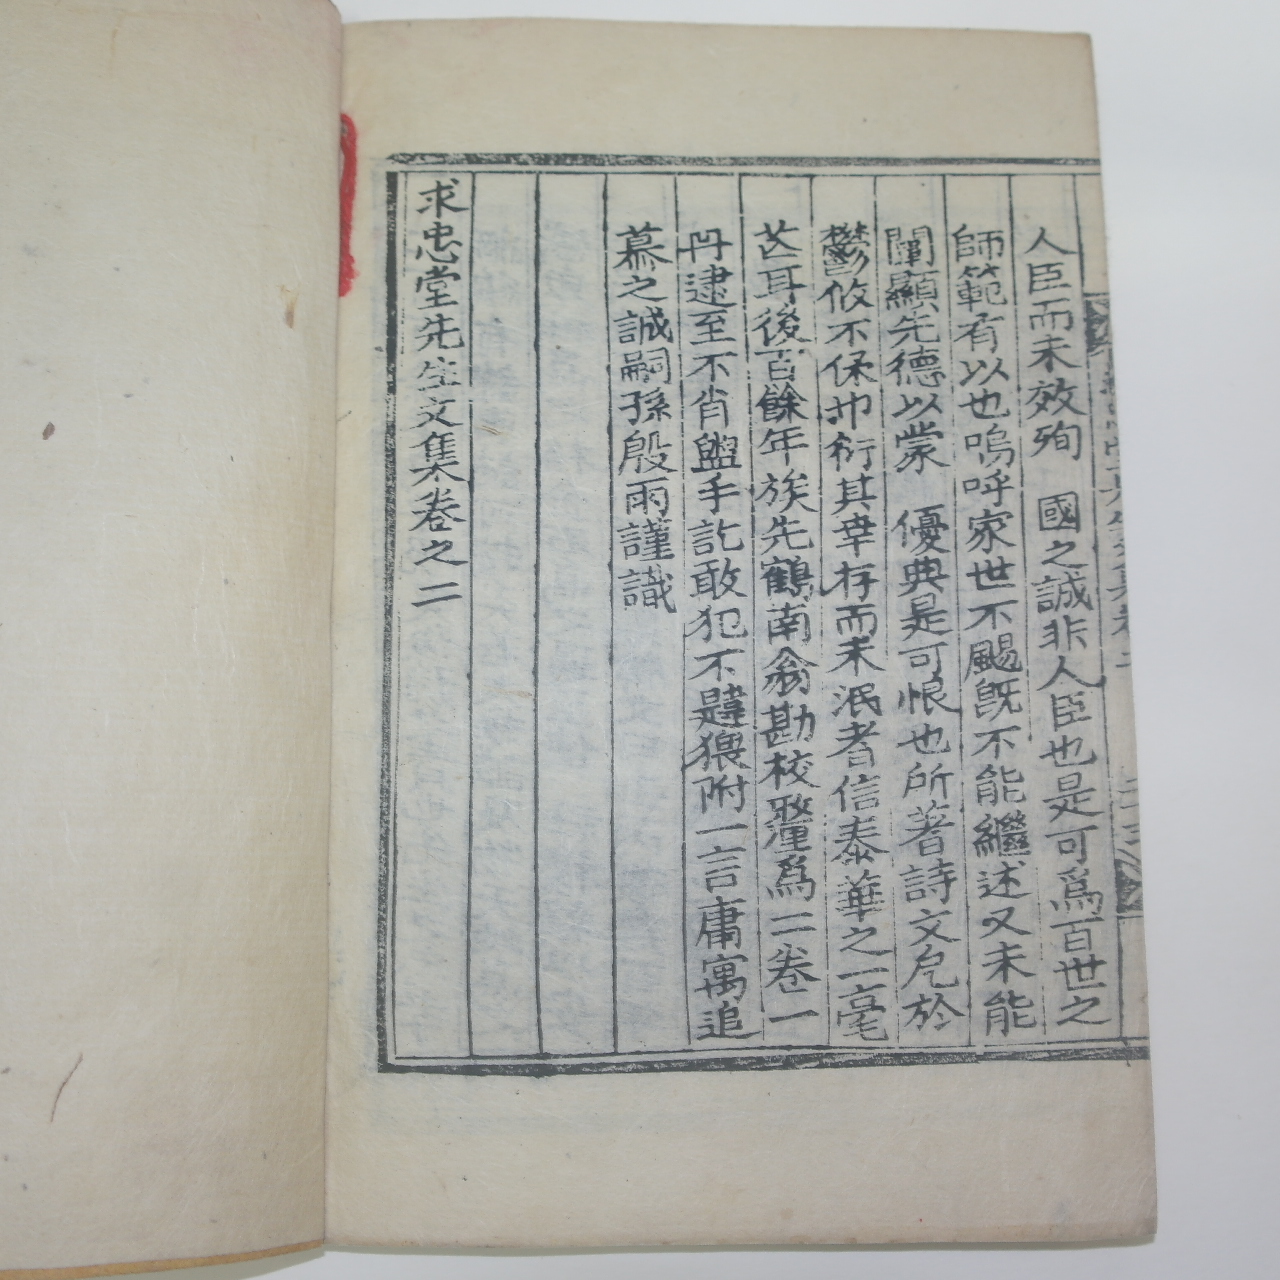 人臣而未效殉 國之誠非人臣也是可爲百世之
師範有以也嗚呼家世不颺旣不能繼述又未能
闡顯先德以蒙 優典是可恨也所著詩文厄於
鬱攸不保巾衍其幸存而未泯者信泰華之一毫
芒耳後百餘年族先鶴南翁勘校釐爲二卷一
冊逮至不肖盥手訖敢犯不韙猥附一言庸寓追
慕之誠嗣孫殷雨謹識
求忠堂先生文集卷之二